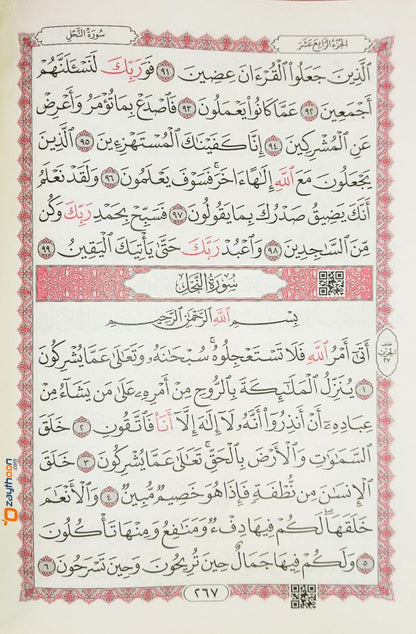 الجُزْءُ الرَّابِعَ عَشَرَ
سُورَةُ النَّحْلِ
الَّذِينَ جَعَلُوا۟ الْقُرْءَانَ عِضِينَ ٩١ فَوَرَبِّكَ لَنَسْـَٔلَنَّهُمْ
أَجْمَعِينَ ٩٢ عَمَّا كَانُوا۟ يَعْمَلُونَ ٩٣ فَاصْدَعْ بِمَا تُؤْمَرُ وَأَعْرِضْ
عَنِ الْمُشْرِكِينَ ٩٤ إِنَّا كَفَيْنَاكَ الْمُسْتَهْزِءِينَ ٩٥ الَّذِينَ
يَجْعَلُونَ مَعَ اللَّهِ إِلَٰهًا ءَاخَرَ ۚ فَسَوْفَ يَعْلَمُونَ ٩٦ وَلَقَدْ نَعْلَمُ
أَنَّكَ يَضِيقُ صَدْرُكَ بِمَا يَقُولُونَ ٩٧ فَسَبِّحْ بِحَمْدِ رَبِّكَ وَكُن
مِّنَ السَّٰجِدِينَ ٩٨ وَاعْبُدْ رَبَّكَ حَتَّىٰ يَأْتِيَكَ الْيَقِينُ ٩٩
سُورَةُ النَّحْلِ
بِسْمِ اللَّهِ الرَّحْمَٰنِ الرَّحِيمِ
أَتَىٰ أَمْرُ اللَّهِ فَلَا تَسْتَعْجِلُوهُ ۚ سُبْحَانَهُ وَتَعَالَىٰ عَمَّا يُشْرِكُونَ
١ يُنَزِّلُ الْمَلَائِكَةَ بِالرُّوحِ مِنْ أَمْرِهِ عَلَىٰ مَن يَشَاءُ مِنْ
عِبَادِهِ أَنْ أَنذِرُوا۟ أَنَّهُ لَا إِلَٰهَ إِلَّا أَنَا فَاتَّقُونِ ٢ خَلَقَ
السَّمَاوَاتِ وَالْأَرْضَ بِالْحَقِّ ۚ تَعَالَىٰ عَمَّا يُشْرِكُونَ ٣ خَلَقَ
الْإِنسَانَ مِن نُّطْفَةٍ فَإِذَا هُوَ خَصِيمٌ مُّبِينٌ ٤ وَالْأَنْعَامَ
خَلَقَهَا ۗ لَكُمْ فِيهَا دِفْءٌ وَمَنَافِعُ وَمِنْهَا تَأْكُلُونَ
٥ وَلَكُمْ فِيهَا جَمَالٌ حِينَ تُرِيحُونَ وَحِينَ تَسْرَحُونَ ٦
٢٦٧
zaythoon
.com